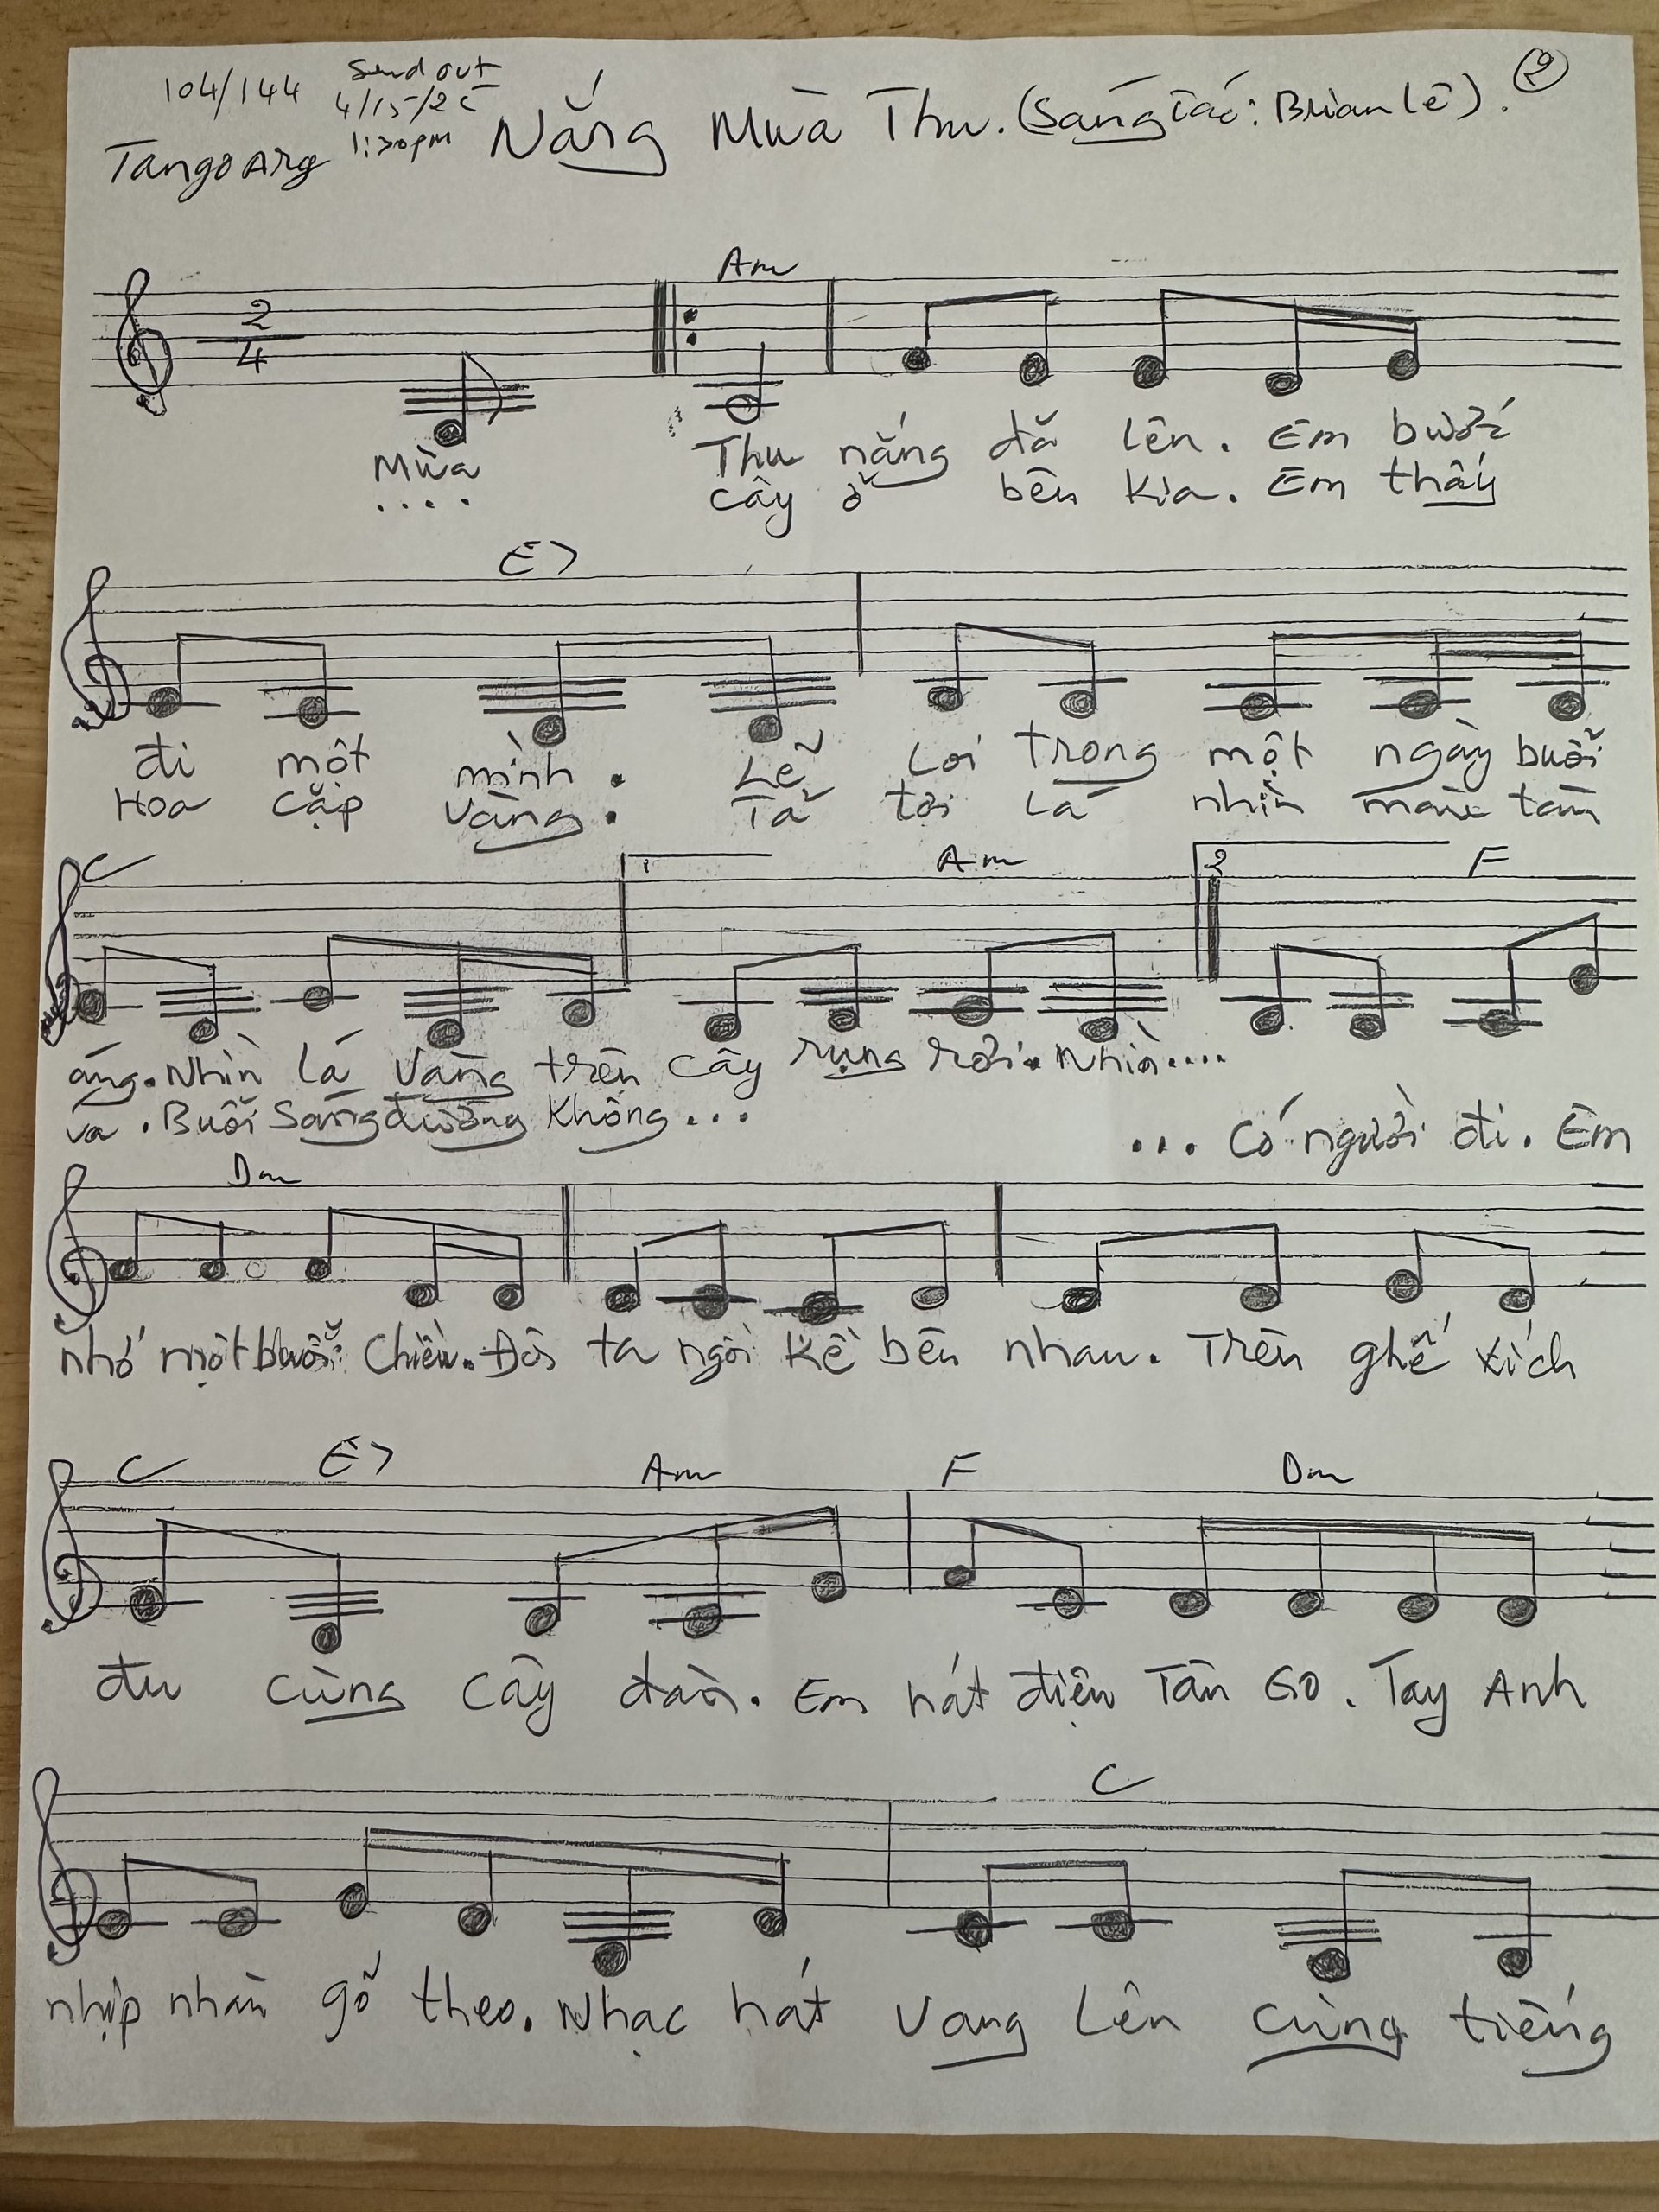 104/144 Send out
4/15/25
Tango Arg 1:30pm Nắng Mùa Thu. (Sáng Tác: Brian Lê). 2
2/4 Am
Mùa Thu nắng đã lên. Em bước
.... cây ở bên kia. Em thấy
E7
đi một mình. Lẽ Loi trong một ngày buổi
Hoa cặp vàng. Tả tơi lá nhìn tàn
C 1 Am 2 F
áng. Nhìn lá vàng trên cây rụng rơi. Nhìn....
va. Buổi Sáng đường không...
... Có người đi. Em
Dm
nhớ một buổi chiều. Đôi ta ngồi kề bên nhau. Trên ghế xích
C E7 Am F Dm
đu cùng cây đàn. Em hát điệu Tân Go. Tay Anh
C
nhịp nhàn gõ theo. Nhạc hát vang lên cùng tiếng